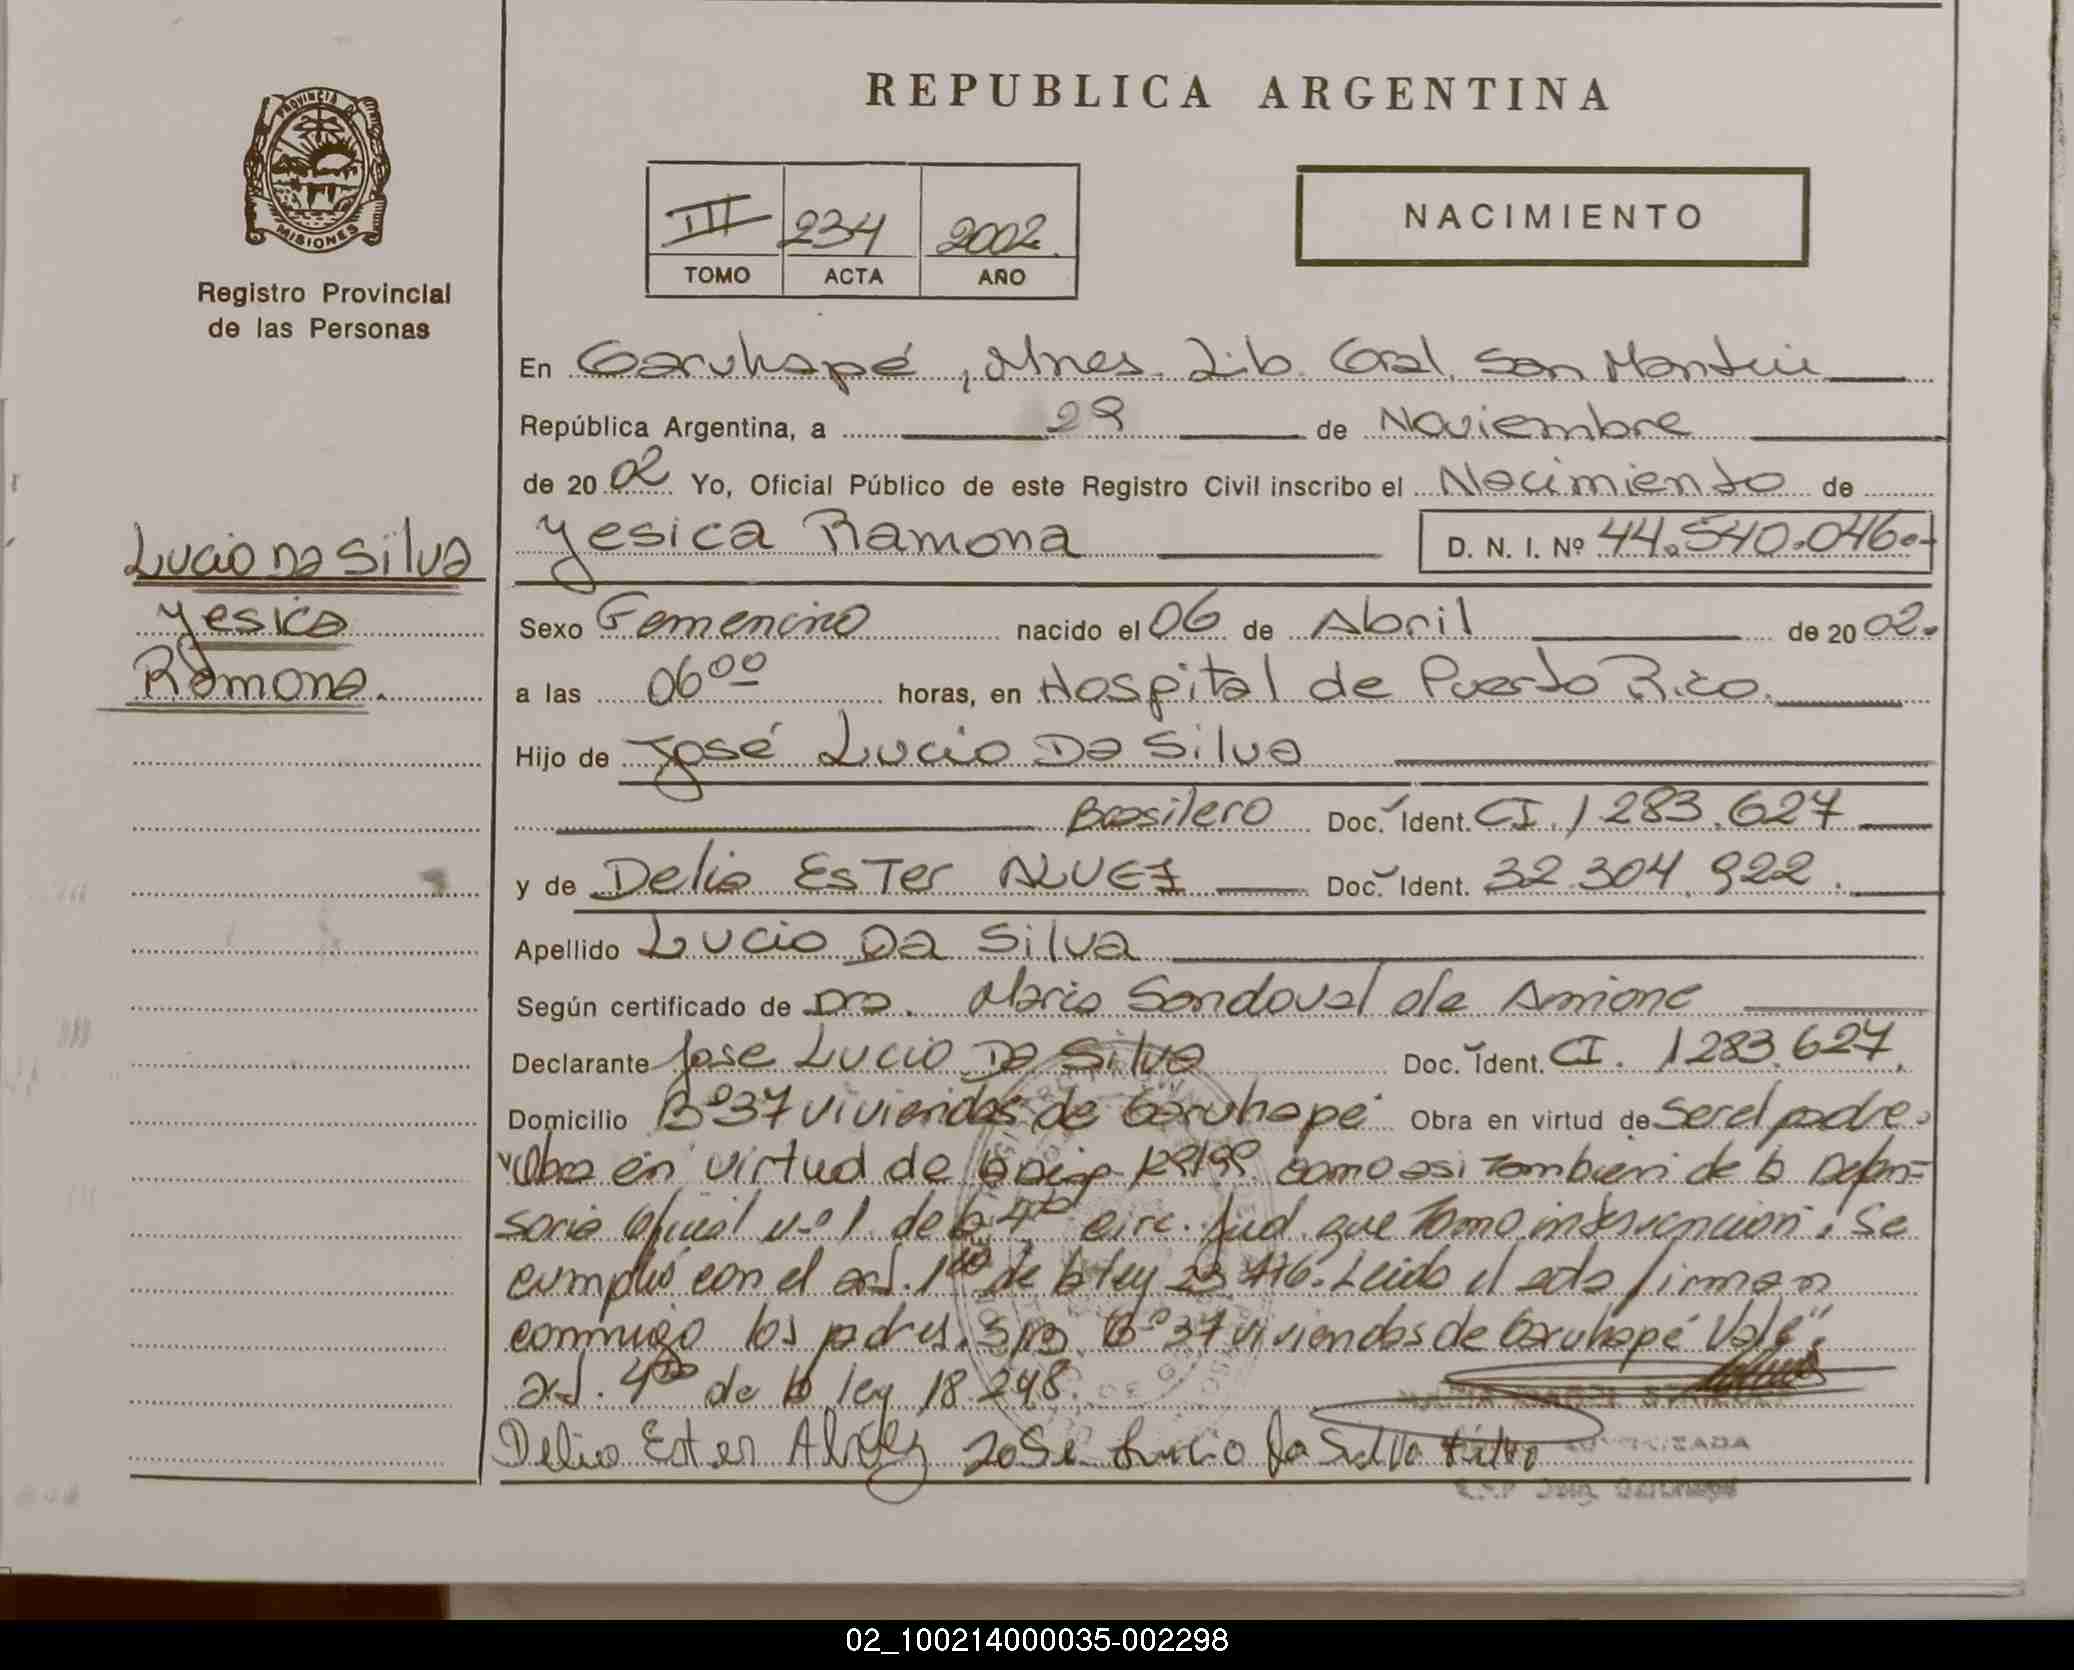 REPUBLICA ARGENTINA
PROVINCIA DE
MISIONES
Registro Provincial
de las Personas
III 234 2002
TOMO ACTA AÑO
NACIMIENTO
En Garuhapé, Mnes. Lib. Gral. San Martin
República Argentina, a 29 de Noviembre
de 2002 Yo, Oficial Público de este Registro Civil inscribo el Nacimiento de
Yesica Ramona D. N. I. Nº 44.540.046.-
Lucio Da Silva
Yesica
Ramona.
Sexo Femenino nacido el 06 de Abril de 2002.
a las 06 00 horas, en Hospital de Puerto Rico.
Hijo de José Lucio Da Silva
Brasilero Doc. Ident. CI. 1283.627
y de Delia Ester ALVEZ Doc. Ident. 32.304.922.
Apellido Lucio Da Silva
Según certificado de Dra. Maria Sandoval de Amione
Declarante Jose Lucio Da Silva Doc. Ident. CI. 1283.627.
Domicilio Bº 37 viviendas de Garuhapé Obra en virtud de Ser el padre.
"Obra en virtud de la como asi Tambien de la Defen=
soria Oficial Nº 1 de la 4ta circ. Jud. que Tomo intervencion. Se
cumplió con el art. 1ro de la ley 23.776. Leido el acta firman
conmigo los padres. S/R. Bº 37 viviendas de Garuhapé Vale".
art. 4to de la ley 18.248.
Delia Ester Alvez Jose Lucio Da Silva
02_100214000035-002298